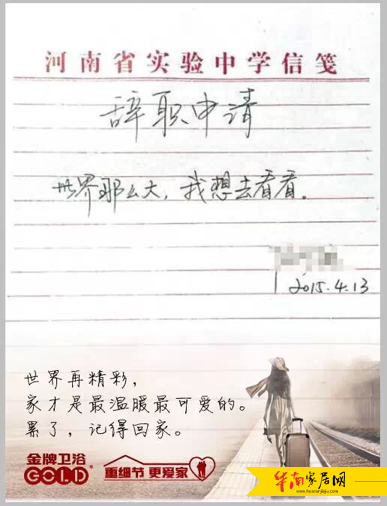 河南省实验中学信笺
辞职申请
世界那么大，我想去看看。
2015.4.13
世界再精彩，
家才是最温暖最可爱的。
累了，记得回家。
金牌卫浴
GOLD
重细节 更爱家
华南家居网